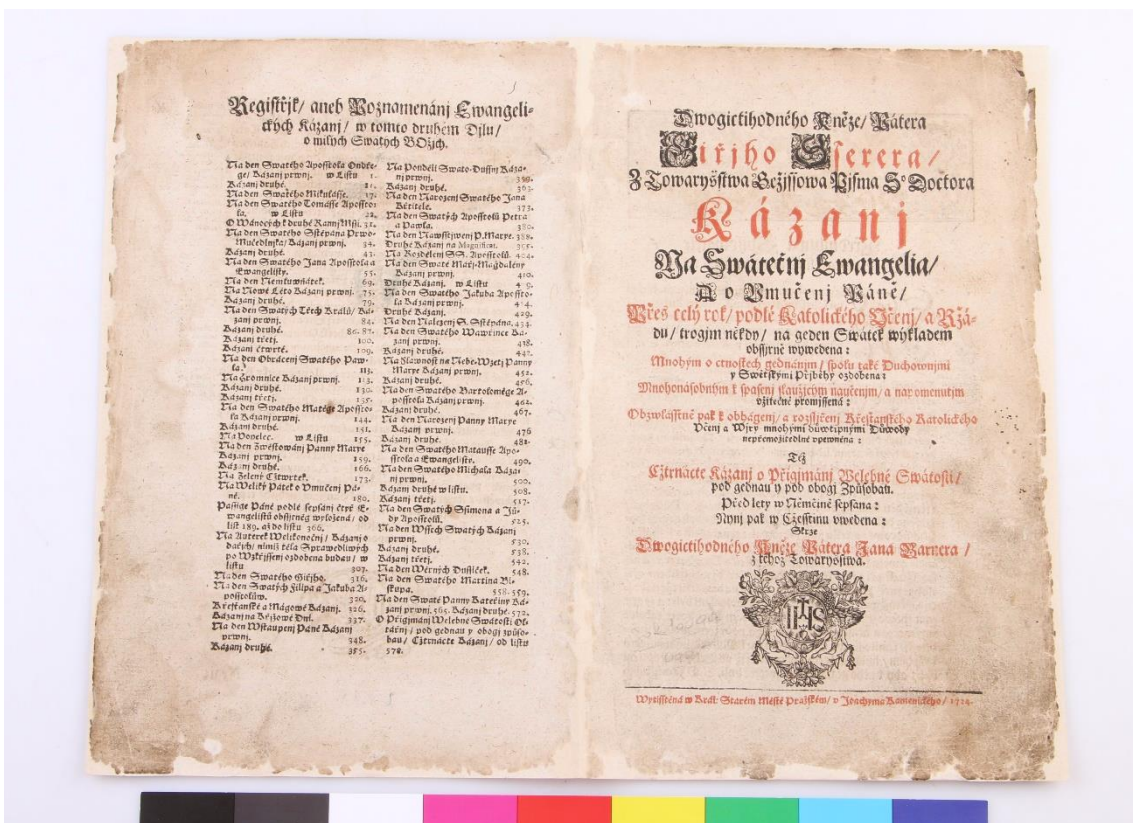 Registřjk/ aneb Poznamenánj Ewangeli-
ckých Kázanj/ w tomto druhém Djlu/
o milých Swatých BOžjch.
Na den Swatého Aposstola Ondře-
ge/ Kázanj prwnj. w Listu 1.
Kázanj druhé. 11.
Na den Swatého Mikulásse. 17.
Na den Swatého Tomásse Aposstola
la. w Listu 22.
O Wánocých k druhé Rannj Mssi. 31.
Na den Swatého Sstěpána Prwo-
Mučedlnjka/ Kázanj prwnj. 34.
Kázanj druhé. 43.
Na den Swatého Jana Aposstola a
Ewangelisty. 55.
Na den Nemluwňátek. 69.
Na Nowé Léto Kázanj prwnj. 75.
Kázanj druhé. 79.
Na den Swatých Třech Králů/ Ká-
zanj prwnj. 84.
Kázanj druhé. 86. 87.
Kázanj třetj. 100.
Kázanj čtwrté. 109.
Na den Obrácenj Swatého Paw-
la. 113.
Na Hromnice Kázanj prwnj. 123.
Kázanj druhé. 130.
Kázanj třetj. 135.
Na den Swatého Matěge Aposstola
la Kázanj prwnj. 144.
Kázanj druhé. 151.
Na Popelec. w Listu 155.
Na den Zwěstowánj Panny Marye
Kázanj prwnj. 159.
Kázanj druhé. 166.
Na Zelený Cžtwrtek. 173.
Na Weliký Pátek o Vmučenj Pá-
ně. 180.
Passige Páně podlé sepsánj čtyř E-
wangelistů obssjrněg wyložená/ od
list 189. až do listu 366.
Na Auterek Welikonočnj/ Kázanj o
dařjch/ nimiž těla Sprawedliwých
po Wzkřjssenj ozdobena budau/ w
listu 307.
Na den Swatého Giřjho. 316.
Na den Swatých Filipa a Jakuba A-
posstolůw. 320.
Křesťanské a Mágowé Kázanj. 326.
Kázanj na Křjžowé Dni. 337.
Na den Wstaupenj Páně Kázanj
prwnj. 348.
Kázanj druhé. 355.
Na Ponděli Swato-Dussnj Káza-
nj prwnj. 359.
Kázanj druhé. 363.
Na den Narozenj Swatého Jana
Křtitele. 373.
Na den Swatých Aposstolů Petra
a Pawla. 380.
Na den Nawsstjwenj P. Marye. 388.
Druhé Kázanj na Magnificat. 395.
Na Rozdělenj SS. Aposstolů. 404.
Na den Swaté Maří-Magdalény
Kázanj prwnj. 410.
Druhé Kázanj. w Listu 419.
Na den Swatého Jakuba Aposstola
la Kázanj prwnj. 424.
Druhé Kázanj. 429.
Na den Nalezenj S. Sstěpána. 434.
Na den Swatého Wawřince Ká-
zanj prwnj. 438.
Kázanj druhé. 442.
Na Slawnost na Nebe-Wzetj Panny
Marye Kázanj prwnj. 452.
Kázanj druhé. 456.
Na den Swatého Bartoloměge A-
posstola Kázanj prwnj. 462.
Kázanj druhé. 467.
Na den Narozenj Panny Marye
Kázanj prwnj. 476
Kázanj druhé. 481.
Na den Swatého Matausse Apo-
sstola a Ewangelisty. 490.
Na den Swatého Michala Káza-
nj prwnj. 500.
Kázanj druhé w listu. 508.
Kázanj třetj. 517.
Na den Swatých Ssimona a Jů-
dy Aposstolů. 525.
Na den Wssech Swatých Kázanj
prwnj. 530.
Kázanj druhé. 538.
Kázanj třetj. 542.
Na den Wěrných Dussiček. 548.
Na den Swatého Martina Bi-
skupa. 558. 559.
Na den Swaté Panny Kateřiny Ká-
zanj prwnj. 565. Kázanj druhé. 572.
O Přigjmánj Welebné Swátosti Ol-
tářnj/ pod gednau y obogj způso-
bau/ Cžtrnácte Kázanj/ od listu
578.
Dwogictihodného Kněze/ Pátera
Giřjho Sserera/
Z Towaryšstwa Gežjssowa Pjsma Sº Doctora
Kázanj
Na Swátečnj Ewangelia/
A o Vmučenj Páně/
Přes celý rok/ podlé Katolického Včenj/ a Ržá-
du/ trogjm někdy/ na geden Swátek wýkladem
obssjrně wywedena:
Mnohým o ctnostech gednánjm/ spolu také Duchownjmi
y Swětskými Přjběhy ozdobena:
Mnohonásobným k spasenj slaužjcým naučenjm/ a napomenutjm
vžitečně promjssená:
Obzwlásstně pak k obhágenj/ a rozssjřenj Křesťanského Katolického
Včenj a Wjry mnohými důwtipnými Důwody
nepřemožitedlně vpewněna:
Též
Cžtrnácte Kázanj o Přigjmánj Welebné Swátosti/
pod gednau y pod obogj Způsobau.
Před lety w Němčině sepsana:
Nynj pak w Cžesstinu vwedena:
Skrze
Dwogictihodného Kněze Pátera Jana Barnera/
z téhož Towaryšstwa.
IHS
Wytisstěná w Král: Starém Městě Pražském/ v Joachyma Kamenického/ 1724.